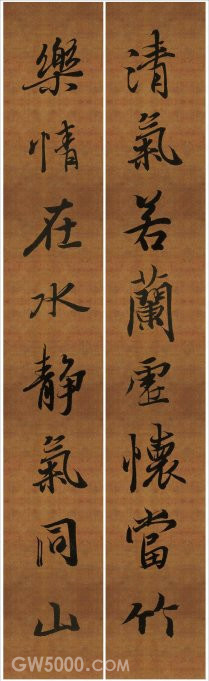 清氣若蘭虛懷當竹
樂情在水静氣同山
GW5000.com